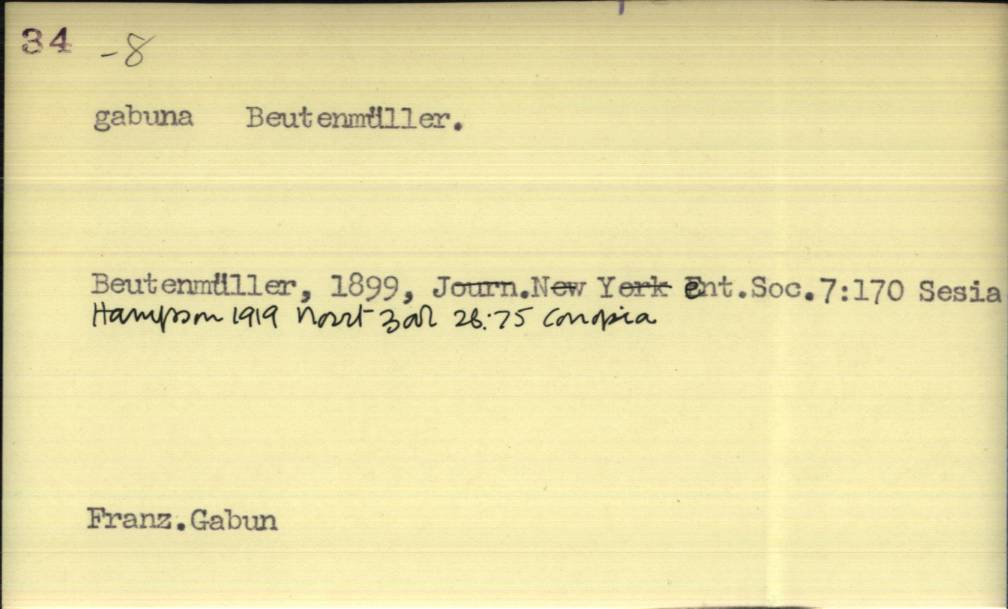 34 -8
gabuna Beutenmüller.
Beutenmüller, 1899, Journ.New York Ent.Soc.7:170 Sesia
Hampson 1919 Novit Zool 26:75 Conopia
Franz.Gabun